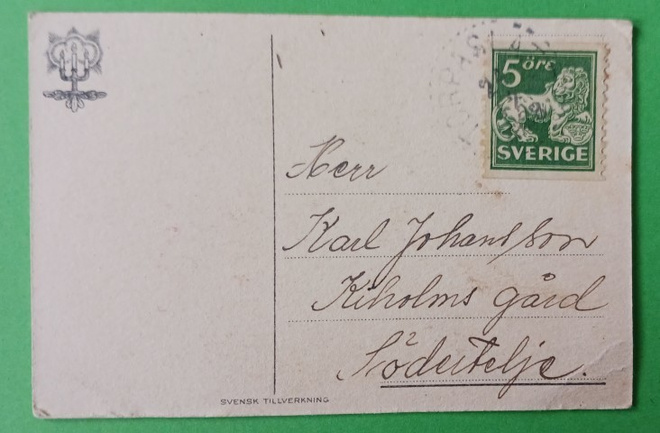 5 ÖRE
SVERIGE
Herr
Karl Johansson
Kiholms gård
Södertelje.
SVENSK TILLVERKNING